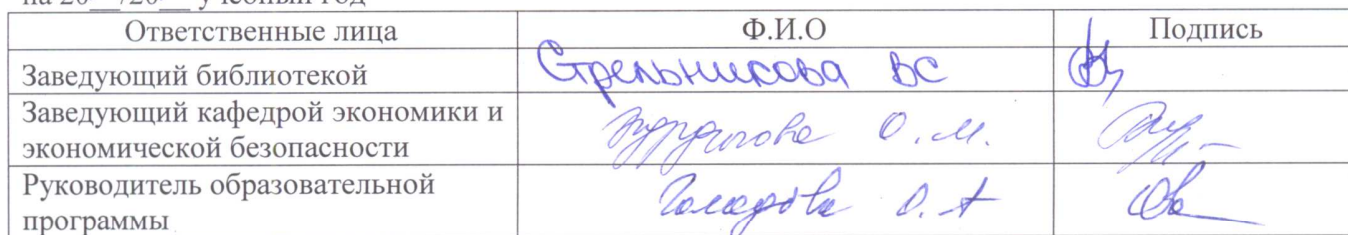 на 20__/20__ учебный год
Ответственные лица Ф.И.О Подпись
Заведующий библиотекой Стрельникова ВС
Заведующий кафедрой экономики и
экономической безопасности О.М.
Руководитель образовательной
программы О.А